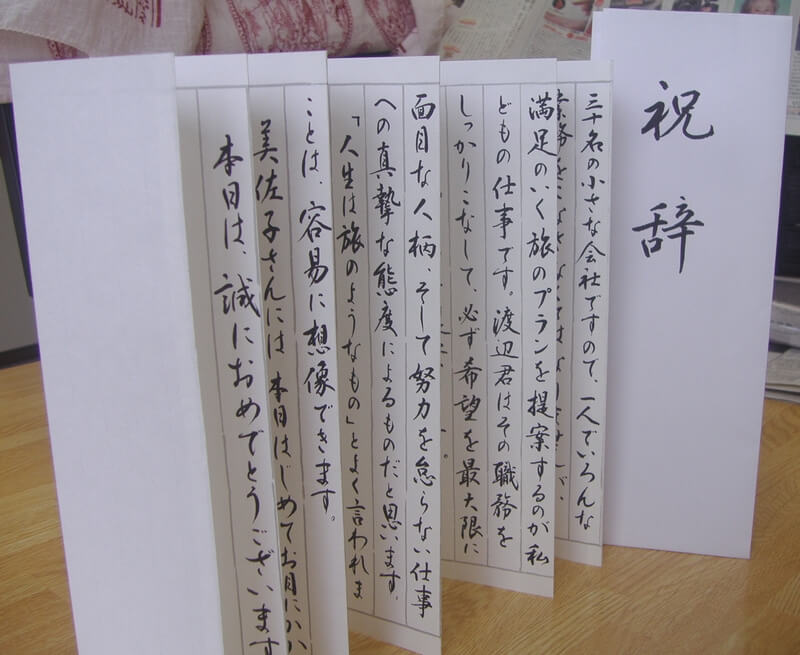 祝辞
三十名の小さな会社ですので、一人でいろんな
満足のいく旅のプランを提案するのが私
どもの仕事です。渡辺君はその職務を
しっかりこなして、必ず希望を最大限に
面目な人柄、そして努力を怠らない仕事
への真摯な態度によるものだと思います。
「人生は旅のようなもの」とよく言われま
ことは、容易に想像できます。
美佐子さんには本日はじめてお目にかか
本日は、誠におめでとうございます